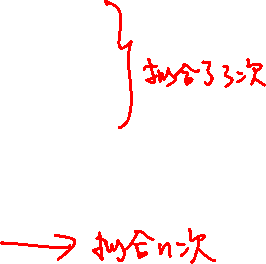 拟合了3次
拟合n次